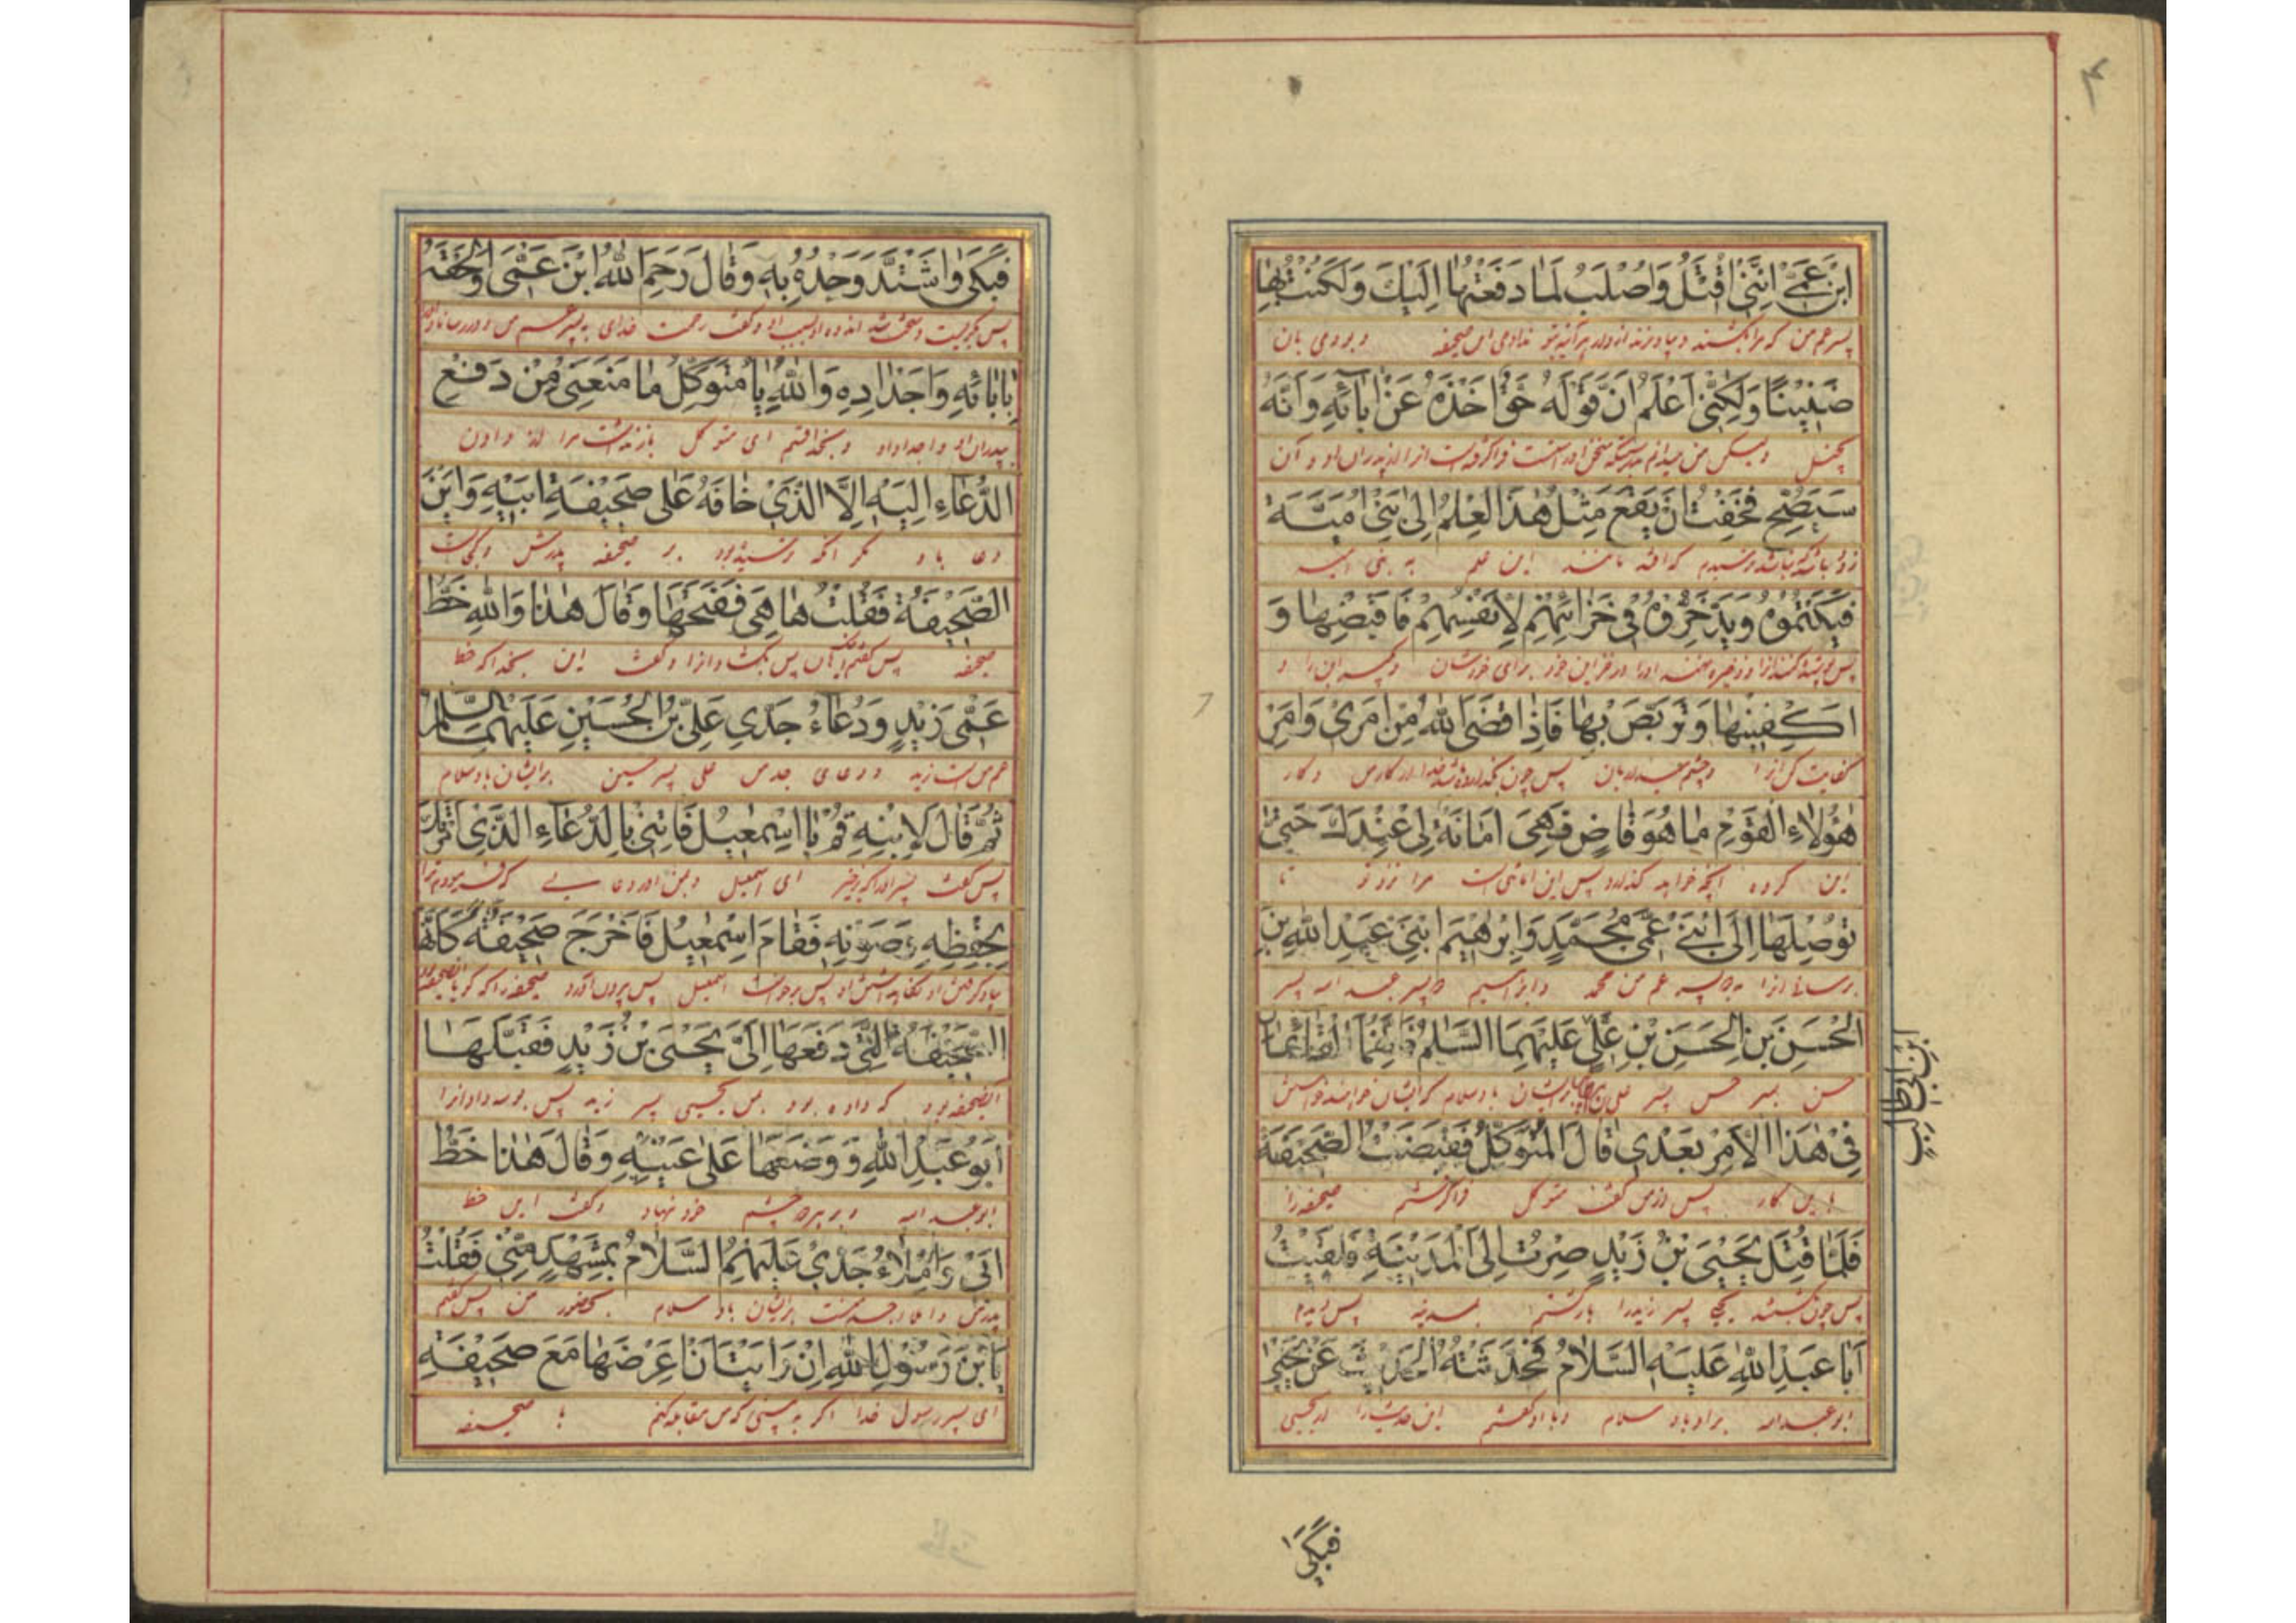 ۴
ابْنُ عَمّي اِنَّنى اُقْتَلُ وَاُصْلَبُ لَمٰا دَفَعْتُهٰا اِلَيْكَ وَلَكُنْتُ بِهٰا
پسر عم من که مرا بکشند و بردار زنند هر آینه بتو ندادمی این صحیفه و بودمی بان
ضَنينًا وَلٰكِنّى اَعْلَمُ اَنَّ قَوْلَهُ حَقٌّ اَخَذَهُ عَنْ اٰبائِهِ وَاَنَّهُ
بخیل و لیکن من میدانم بدرستیکه سخن او راست فرا گرفته است از پدران او و آن
سَيَصِحُّ فَخِفْتُ اَنْ يَقَعَ مِثْلُ هٰذَا الْعِلْمِ اِلىٰ بَنى اُمَيَّةَ
این علم به بنی امیه
فَيَكْتُمُوهُ وَيَدَّخِرُوهُ فى خَزٰائِنِهِمْ لِاَنْفُسِهِمْ فَاقْبِضْهٰا وَ
برای خودشان و بگیر این را و
اكْفِنيهٰا وَتَرَبَّصْ بِهٰا فَاِذٰا قَضَى اللّٰهُ مِنْ اَمْرى وَاَمْرِ
کفایت کن انرا پس چون من و کار
هٰؤُلاٰءِ الْقَوْمِ مٰا هُوَ قٰاضٍ فَهِىَ اَمٰانَةٌ لى عِنْدَكَ حَتّىٰ
این گروه آنچه خواهد پس این امانتی است مرا نزد تو تا
تُوصِلَهٰا اِلَى ابْنَىْ عَمّى مُحَمَّدٍ وَاِبْرٰهيمَ ابْنَىْ عَبْدِ اللّٰهِ بْنِ
برسانی انرا به دو پسر عم من محمد و ابراهیم دو پسر عبد الله پسر
الْحَسَنِ بْنِ الْحَسَنِ بْنِ عَلِىٍّ عَلَيْهِمَا السَّلٰامُ فَاِنَّهُمَا الْقٰائِمٰانِ
ابْنِ اَبى طٰالِبٍ
حسن پسر حسن پسر علی بر ایشان باد سلام که ایشان
فى هٰذَا الْاَمْرِ بَعْدى قٰالَ الْمُتَوَكِّلُ فَقَبَضْتُ الصَّحيفَةَ
باین کار پس از من گفت متوکل فرا گرفتم صحیفه را
فَلَمّٰا قُتِلَ يَحْيَى بْنُ زَيْدٍ صِرْتُ اِلَى الْمَدينَةِ فَلَقيتُ
پس چون کشته یحیی پسر زید را بمدینه پس دیدم
اَبٰا عَبْدِ اللّٰهِ عَلَيْهِ السَّلاٰمُ فَحَدَّثْتُهُ الْحَديثَ عَنْ يَحْيىٰ
ابو عبد الله بر او باد سلام و با او گفتم این حدیث را از یحیی
فَبَكىٰ
فَبَكىٰ وَاشْتَدَّ وَجْدُهُ بِهِ وَقٰالَ رَحِمَ اللّٰهُ ابْنَ عَمّى وَاَلْحَقَهُ
پس بگریست و سخت شد اندوه او بسبب او و گفت رحمت خدای به پسر عم من
بِاٰبٰائِهِ وَاَجْدٰادِهِ وَاللّٰهِ يٰا مُتَوَكِّلُ مٰا مَنَعَنى مِنْ دَفْعِ
پدران او و اجداد او و بخدا قسم ای متوکل باز نداشت مرا از دادن
الدُّعٰاءِ اِلَيْهِ اِلَّا الَّذى خٰافَهُ عَلىٰ صَحيفَةِ اَبيهِ وَاَيْنَ
دعا باو مگر آنکه بر صحیفه پدرش و کجاست
الصَّحيفَةُ فَقُلْتُ هٰا هِىَ فَفَتَحَهٰا وَقٰالَ هٰذٰا وَاللّٰهِ خَطُّ
صحیفه پس گفتم پس بگشاد انرا و گفت این بخدا که خط
عَمّى زَيْدٍ وَدُعٰاءُ جَدّى عَلِىِّ بْنِ الْحُسَيْنِ عَلَيْهِمَا السَّلٰمُ
عم من است زید و دعای جد من علی پسر حسین بر ایشان باد سلام
ثُمَّ قٰالَ لِابْنِهِ قُمْ يٰا اِسْمٰعيلُ فَاْتِنى بِالدُّعٰاءِ الَّذى اَمَرْتُكَ
پس گفت پسر او را که برخیز ای اسمعیل
بِحِفْظِهِ وَصَوْنِهِ فَقٰامَ اِسْمٰعيلُ فَاَخْرَجَ صَحيفَةً كَاَنَّهَا
پس برخواست اسمعیل پس بیرون آورد صحیفه را که گویا
الصَّحيفَةُ الَّتى دَفَعَهٰا اِلَىَّ يَحْيَى بْنُ زَيْدٍ فَقَبَّلَهٰا
که داده بود بمن یحیی پسر زید پس بوسه داد انرا
اَبُو عَبْدِ اللّٰهِ وَوَضَعَهٰا عَلىٰ عَيْنَيْهِ وَقٰالَ هٰذٰا خَطُّ
ابو عبد الله و بر دو چشم خود نهاد و گفت این خط
اَبى وَاِمْلاٰءُ جَدّى عَلَيْهِمُ السَّلاٰمُ بِمَشْهَدٍ مِنّى فَقُلْتُ
پدرم و املاء جد منست بر ایشان باد سلام بحضور من پس گفتم
يَا بْنَ رَسُولِ اللّٰهِ اِنْ رَاَيْتَ اَنْ اَعْرِضَهٰا مَعَ صَحيفَةِ
ای پسر رسول خدا اگر به بینی که من مقابله کنم با صحیفه